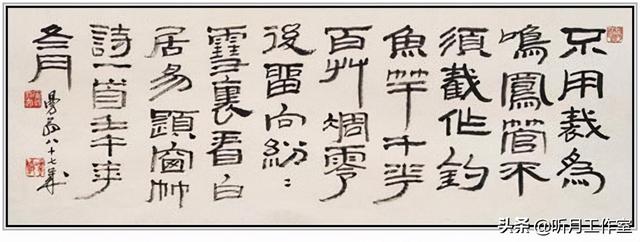 只用裁為
鳴鳳管不
須截作釣
魚竿千花
百艸凋零
後留向紛〻
雪裏看白
居易題窗竹
詩一首壬午年
冬月
曼翁八十七
头条@听月工作室